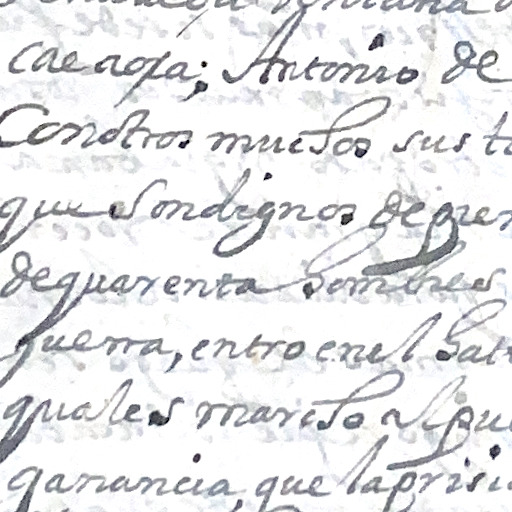 caeaora; Antonio de
Conotros muchos sus
que sondignos de
dequarenta hombres
guerra, entro enel
quales marcho al
ganancia, que la